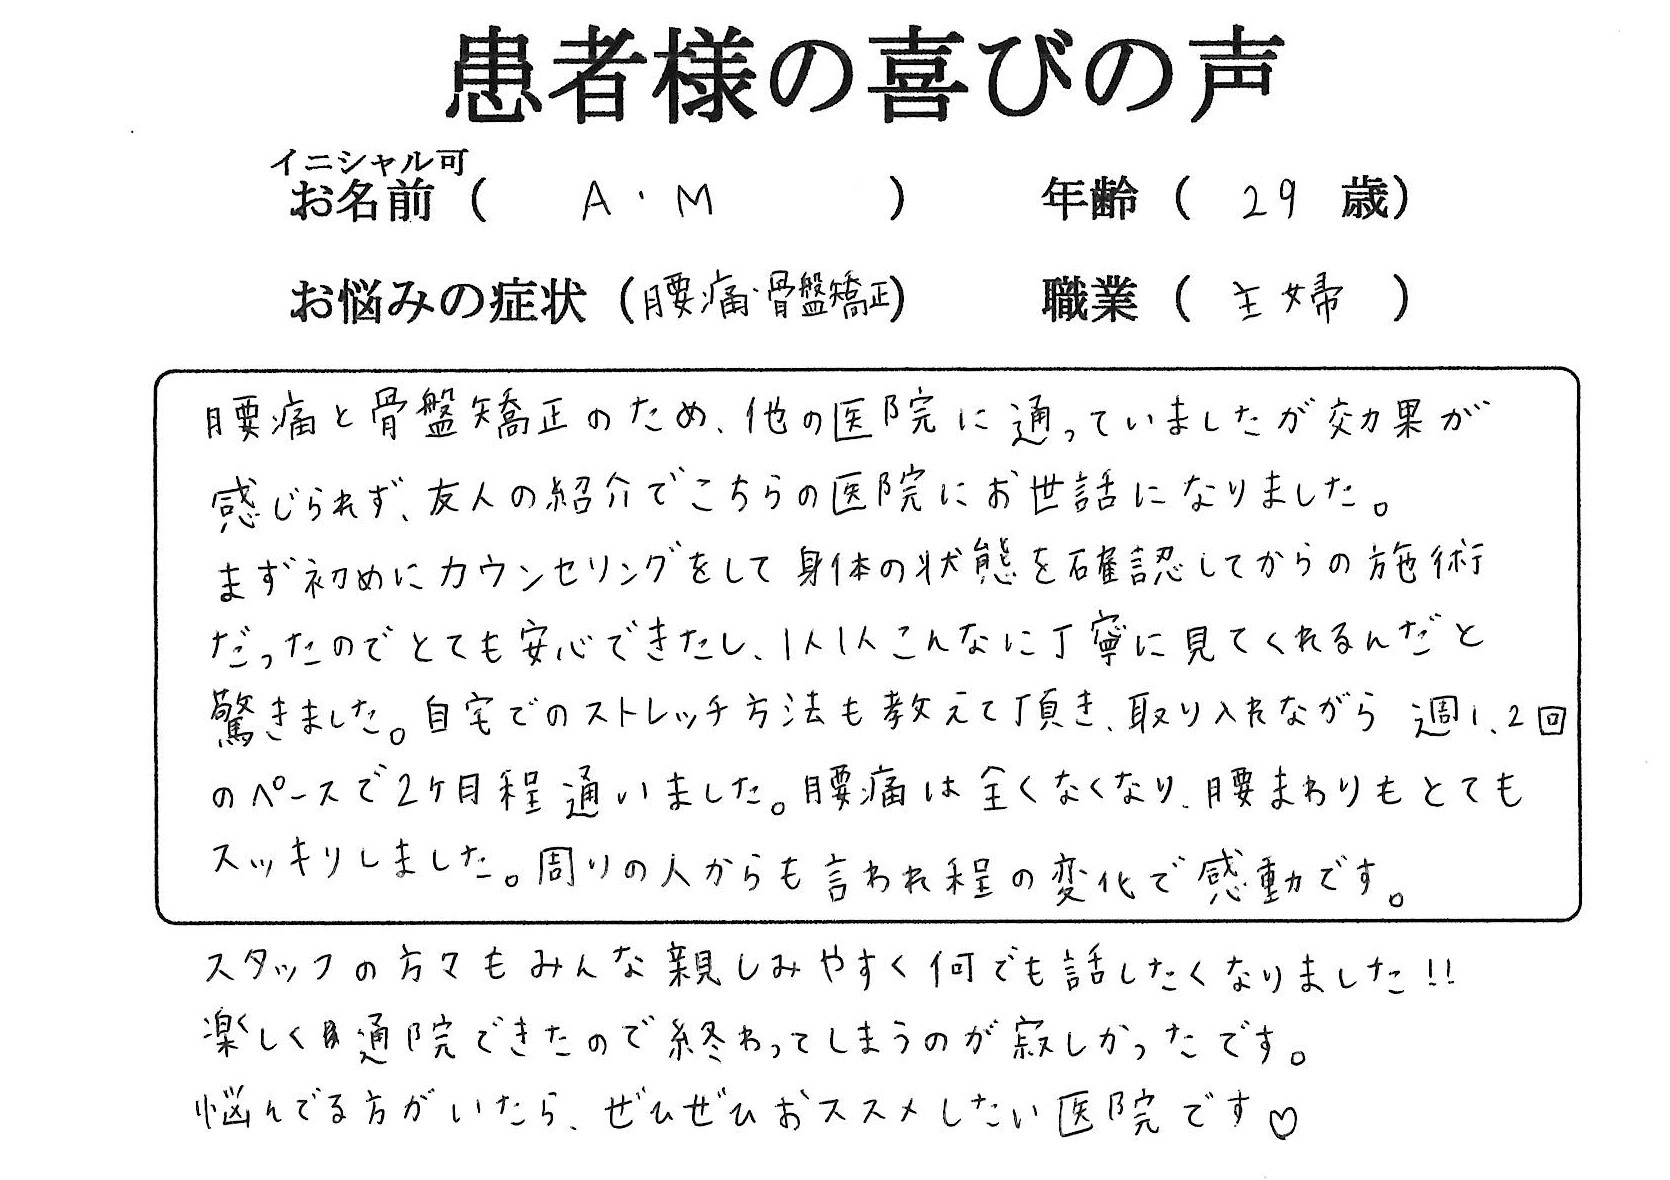 患者様の喜びの声
イニシャル可
お名前 ( A・M ) 年齢 ( 29 歳)
お悩みの症状 (腰痛・骨盤矯正) 職業 ( 主婦 )
腰痛と骨盤矯正のため、他の医院に通っていましたが効果が
感じられず、友人の紹介でこちらの医院にお世話になりました。
まず初めにカウンセリングをして身体の状態を確認してからの施術
だったのでとても安心できたし、1人1人こんなに丁寧に見てくれるんだと
驚きました。自宅でのストレッチ方法も教えて頂き、取り入れながら週1、2回
のペースで2ヶ月程通いました。腰痛は全くなくなり、腰まわりもとても
スッキリしました。周りの人からも言われ程の変化で感動です。
スタッフの方々もみんな親しみやすく何でも話したくなりました!!
楽しく通院できたので終わってしまうのが寂しかったです。
悩んでる方がいたら、ぜひぜひおススメしたい医院です♡